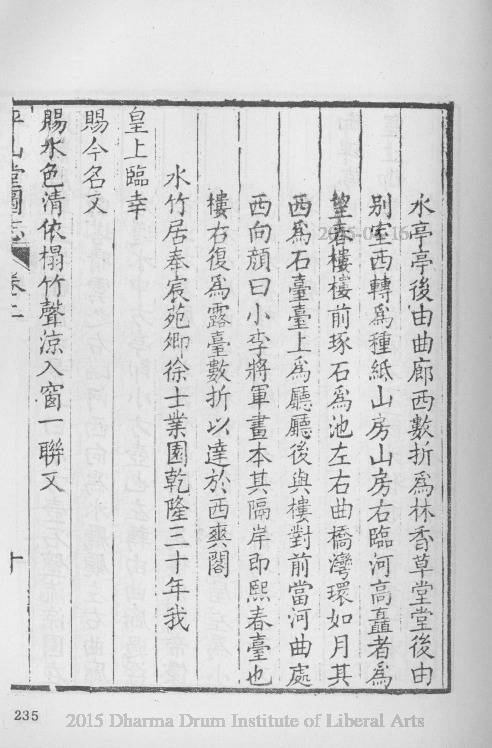 水亭亭後由曲廊西數折爲林香草堂堂後由
别室西轉爲種紙山房山房右臨河高矗者爲
望春樓樓前琢石爲池左右曲橋灣環如月其
西爲石臺臺上爲廳廳後與樓對前當河曲處
西向顔曰小李將軍畫本其隔岸即熙春臺也
樓右復爲露臺數折以達於西爽閣
水竹居奉宸苑卿徐士業園乾隆三十年我
皇上臨幸
賜今名又
賜水色清依榻竹聲涼入窗一聯又
平山堂圖志 卷二 十
235
2015 Dharma Drum Institute of Liberal Arts